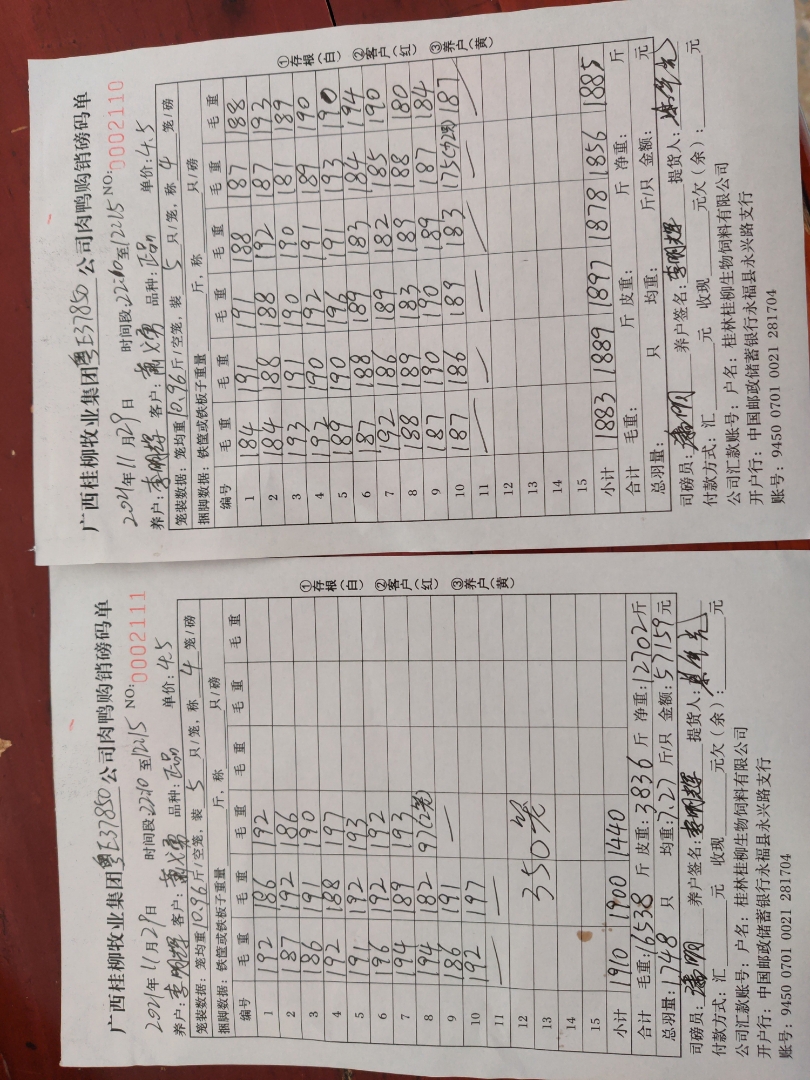 广西桂柳牧业集团粤E37850公司肉鸭购销磅码单
2021年11月29日 时间段:22:10至12:15 NO: 0002110
养户: 李明辉 客户: 品种: 正品 单价: 4.5
笼装数据: 笼均重10.96斤/空笼, 装 5 只/笼, 称 4 笼/磅
捆脚数据: 铁筐或铁板子重量 斤, 称 只/磅
编号 毛重 毛重 毛重 毛重 毛重 毛重
1 184 191 191 188 187 88
2 184 188 188 192 187 193
3 193 191 190 190 181 189
4 192 190 192 191 189 190
5 189 190 196 191 193 190
6 187 188 189 183 184 194
7 192 186 189 182 185 190
8 188 189 183 189 188 180
9 187 190 190 189 187 184
10 187 186 189 183 175 187
11
12
13
14
15
小计 1883 1889 1897 1878 1856 1885
合计 毛重: 斤 皮重: 斤 净重: 斤
总羽量: 只 均重: 斤/只 金额: 元
司磅员: 养户签名: 李明辉 提货人:
付款方式: 汇 元 收现 元欠(余): 元
公司汇款账号: 户名: 桂林桂柳生物饲料有限公司
开户行: 中国邮政储蓄银行永福县永兴路支行
账号: 9450 0701 0021 281704
①存根(白) ②客户(红) ③养户(黄)
广西桂柳牧业集团粤E37850公司肉鸭购销磅码单
2021年11月29日 时间段:22:10至12:15 NO: 0002111
养户: 李明辉 客户: 品种: 正品 单价: 4.5
笼装数据: 笼均重10.96斤/空笼, 装 5 只/笼, 称 4 笼/磅
捆脚数据: 铁筐或铁板子重量 斤, 称 只/磅
编号 毛重 毛重 毛重 毛重 毛重 毛重
1 192 186 192
2 187 192 186
3 186 191 190
4 192 188 197
5 191 192 193
6 196 192 192
7 194 189 193
8 194 182 97(2笼)
9 186 191
10 192 197
11
12
13 350笼
14
15
小计 1910 1900 1440
合计 毛重: 16538 斤 皮重: 3836 斤 净重: 12702斤
总羽量: 1748 只 均重: 7.27 斤/只 金额: 57159元
司磅员: 养户签名: 李明辉 提货人:
付款方式: 汇 元 收现 元欠(余): 元
公司汇款账号: 户名: 桂林桂柳生物饲料有限公司
开户行: 中国邮政储蓄银行永福县永兴路支行
账号: 9450 0701 0021 281704
①存根(白) ②客户(红) ③养户(黄)